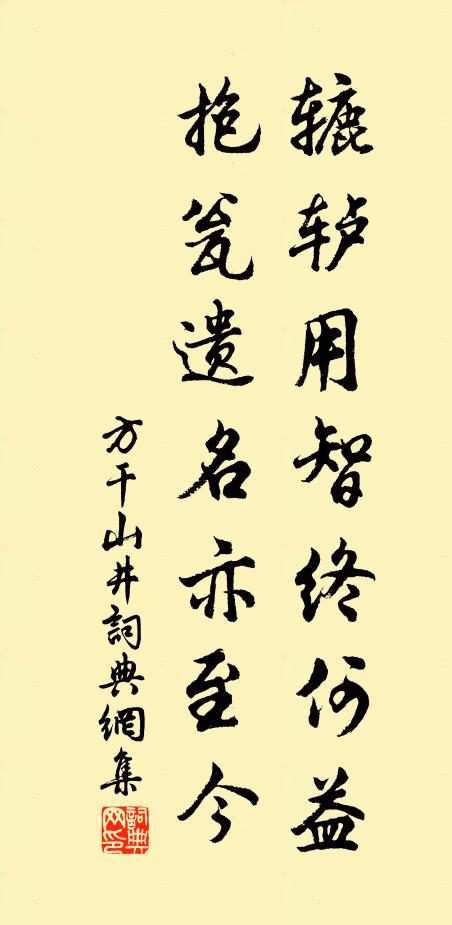 辘轳用智终何益
抱瓮遗名亦至今
方干山井詞典網集
詞典
网印